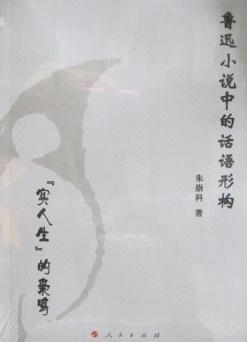 鲁迅小说中的话语形构
“实人生”的枭鸣
朱崇科 著
人民出版社